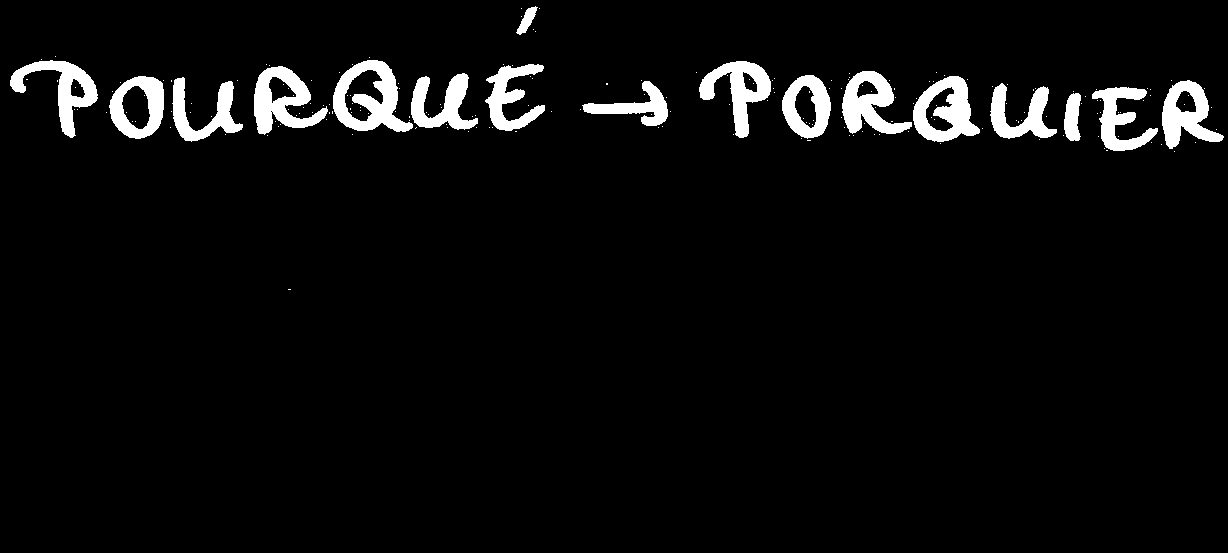 POURQUÉ → PORQUIER